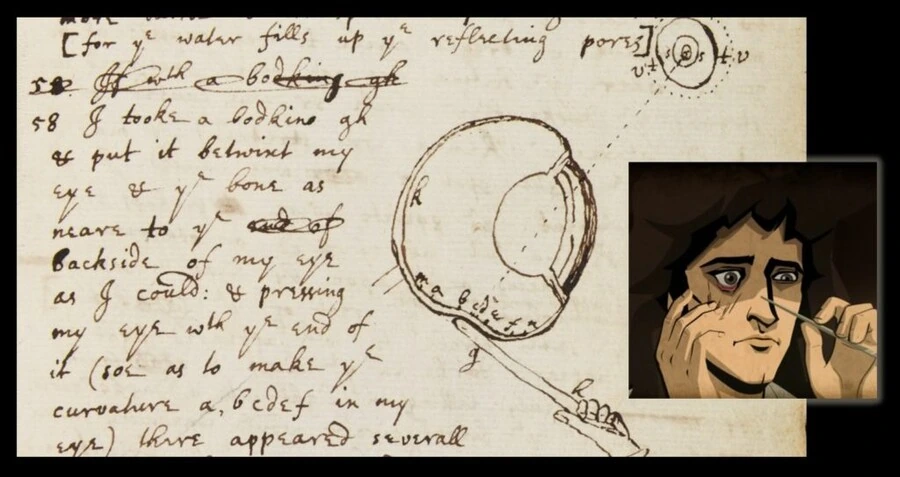 [for yᵉ water fills up yᵉ reflecting pores]
58 If wth a bodking gh
58 I tooke a bodkine gh
& put it betwixt my
eye & yᵉ bone as
neare to yᵉ end of
backside of my eye
as I could: & pressing
my eye wth yᵉ end of
it (soe as to make yᵉ
curvature a, bcdef in my
eye) there appeared severall
v t s s t v
k
m a b c d e f n
g
h